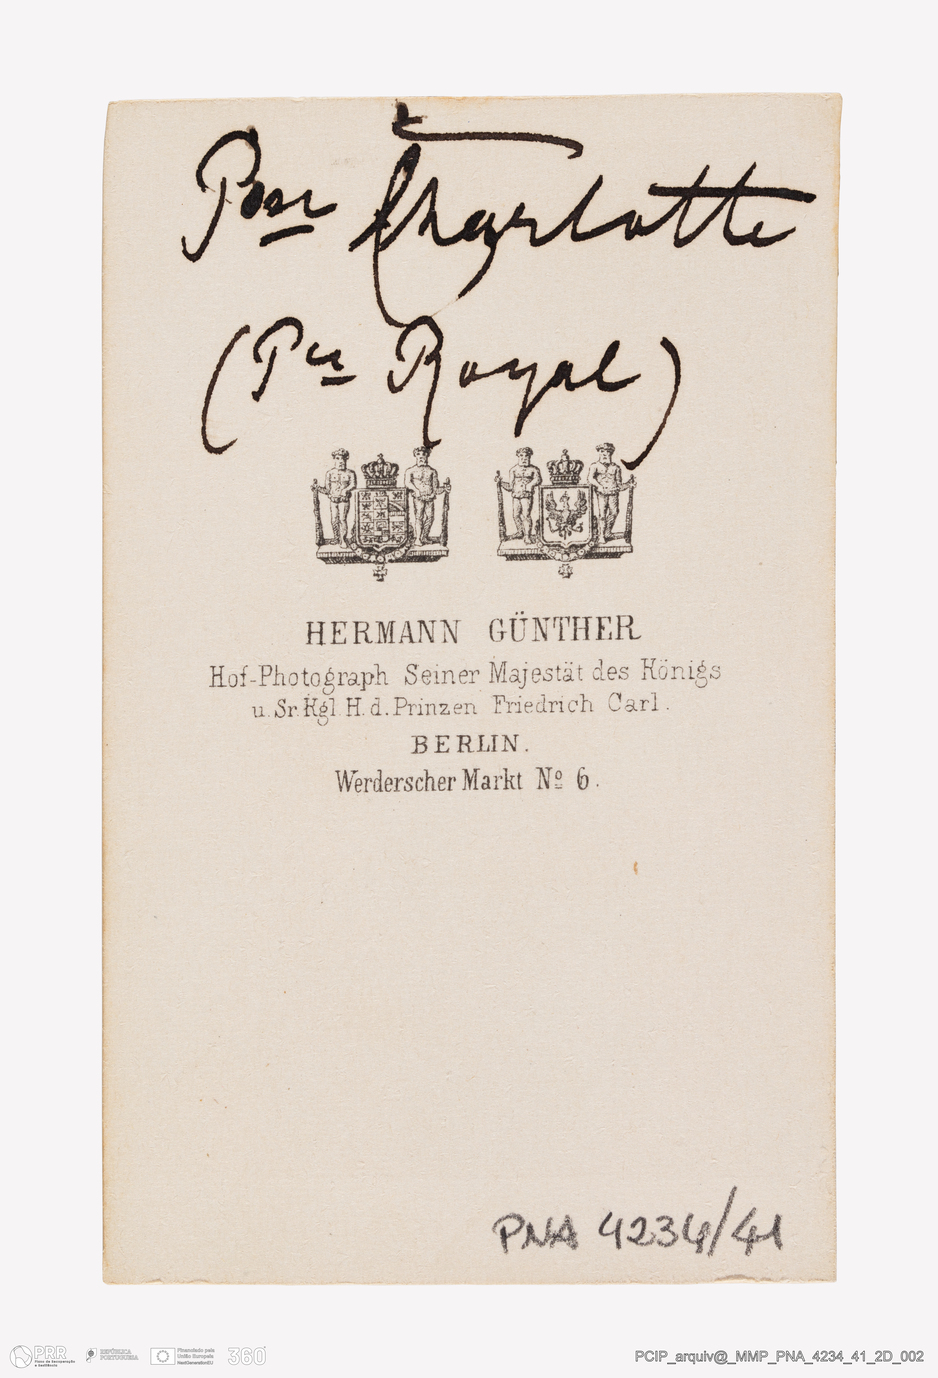 Psse Charlotte
(Pss Royal)
HERMANN GÜNTHER
Hof-Photograph Seiner Majestät des Königs
u. Sr. Kgl. H. d. Prinzen Friedrich Carl.
BERLIN.
Werderscher Markt Nº 6.
PNA 4234/41
PRR
Plano de Recuperação e Resiliência
REPÚBLICA PORTUGUESA
Financiado pela
União Europeia
NextGenerationEU
360
PCIP_arquiv@_MMP_PNA_4234_41_2D_002